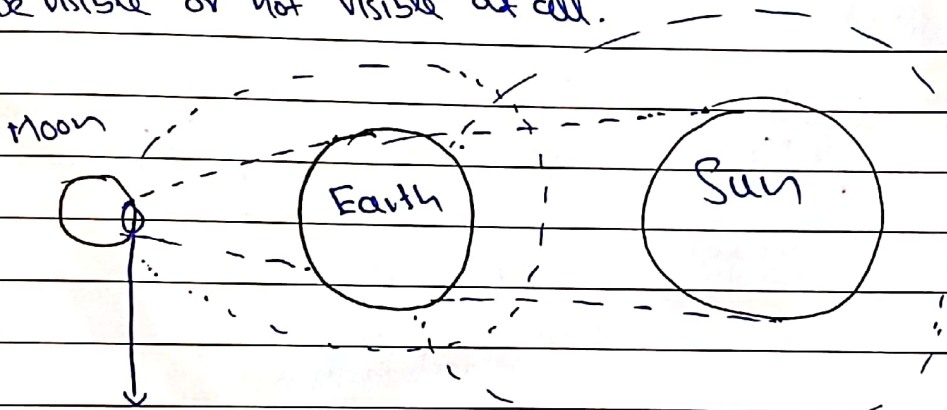 be visible or not visible at all.
Moon
Earth
Sun